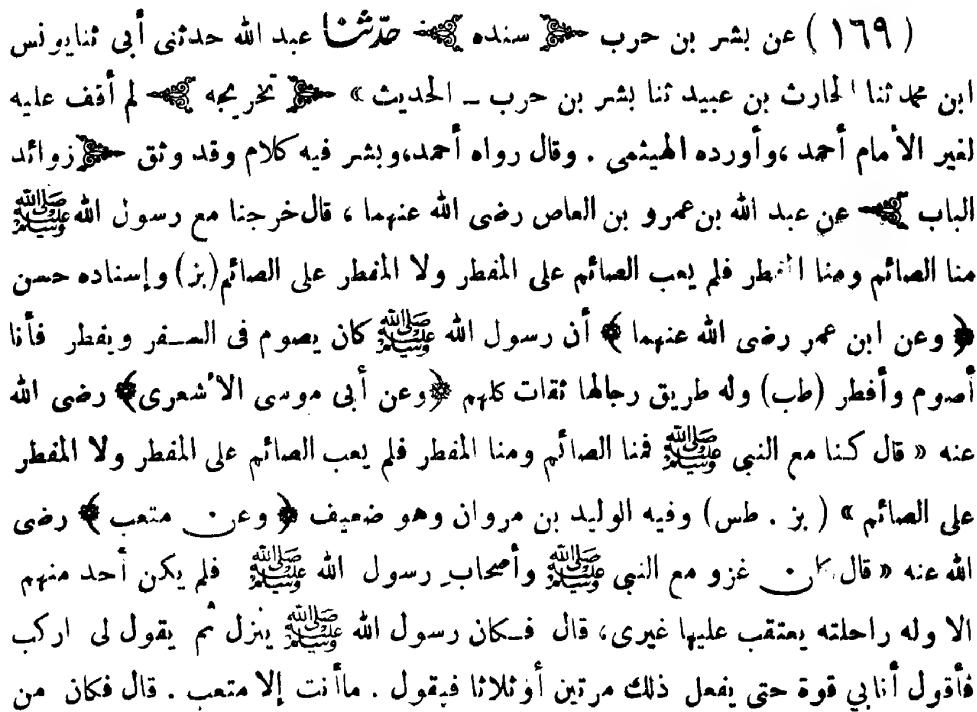 ( ١٦٩ ) عن بشر بن حرب ﴿ سنده ﴾ حدّثنا عبد الله حدثنى أبى ثنا يونس
ابن محمد ثنا الحارث بن عبيد ثنا بشر بن حرب ــ الحديث » ﴿ تخريجه ﴾ لم أقف عليه
لغير الأمام أحمد ،وأورده الهيثمى . وقال رواه أحمد،وبشر فيه كلام وقد وثق ﴿ زوائد
الباب ﴾ عن عبد الله بن عمرو بن العاص رضى الله عنهما ، قال خرجنا مع رسول الله ﷺ
منا الصائم ومنا المفطر فلم يعب الصائم على المفطر ولا المفطر على الصائم(بز) وإسناده حسن
﴿ وعن ابن عمر رضى الله عنهما ﴾ أن رسول الله ﷺ كان يصوم فى السـفر ويفطر فأنا
أصوم وأفطر (طب) وله طريق رجالها ثقات كلهم ﴿وعن أبى موسى الأشعرى﴾ رضى الله
عنه « قال كـنا مع النبى ﷺ فمنا الصائم ومنا المفطر فلم يعب الصائم على المفطر ولا المفطر
على الصائم » ( بز . طس) وفيه الوليد بن مروان وهو ضعيف ﴿ وعن متعب ﴾ رضى
الله عنه « قال كان غزو مع النبى ﷺ وأصحاب رسول الله ﷺ فلم يكن أحد منهم
الا وله راحلته يعتقب عليها غيرى، قال فـكان رسول الله ﷺ ينزل ثم يقول لى اركب
فأقول أنا بي قوة حتى يفعل ذلك مرتين أو ثلاثا فيقول . ما أنت إلا متعب . قال فكان من